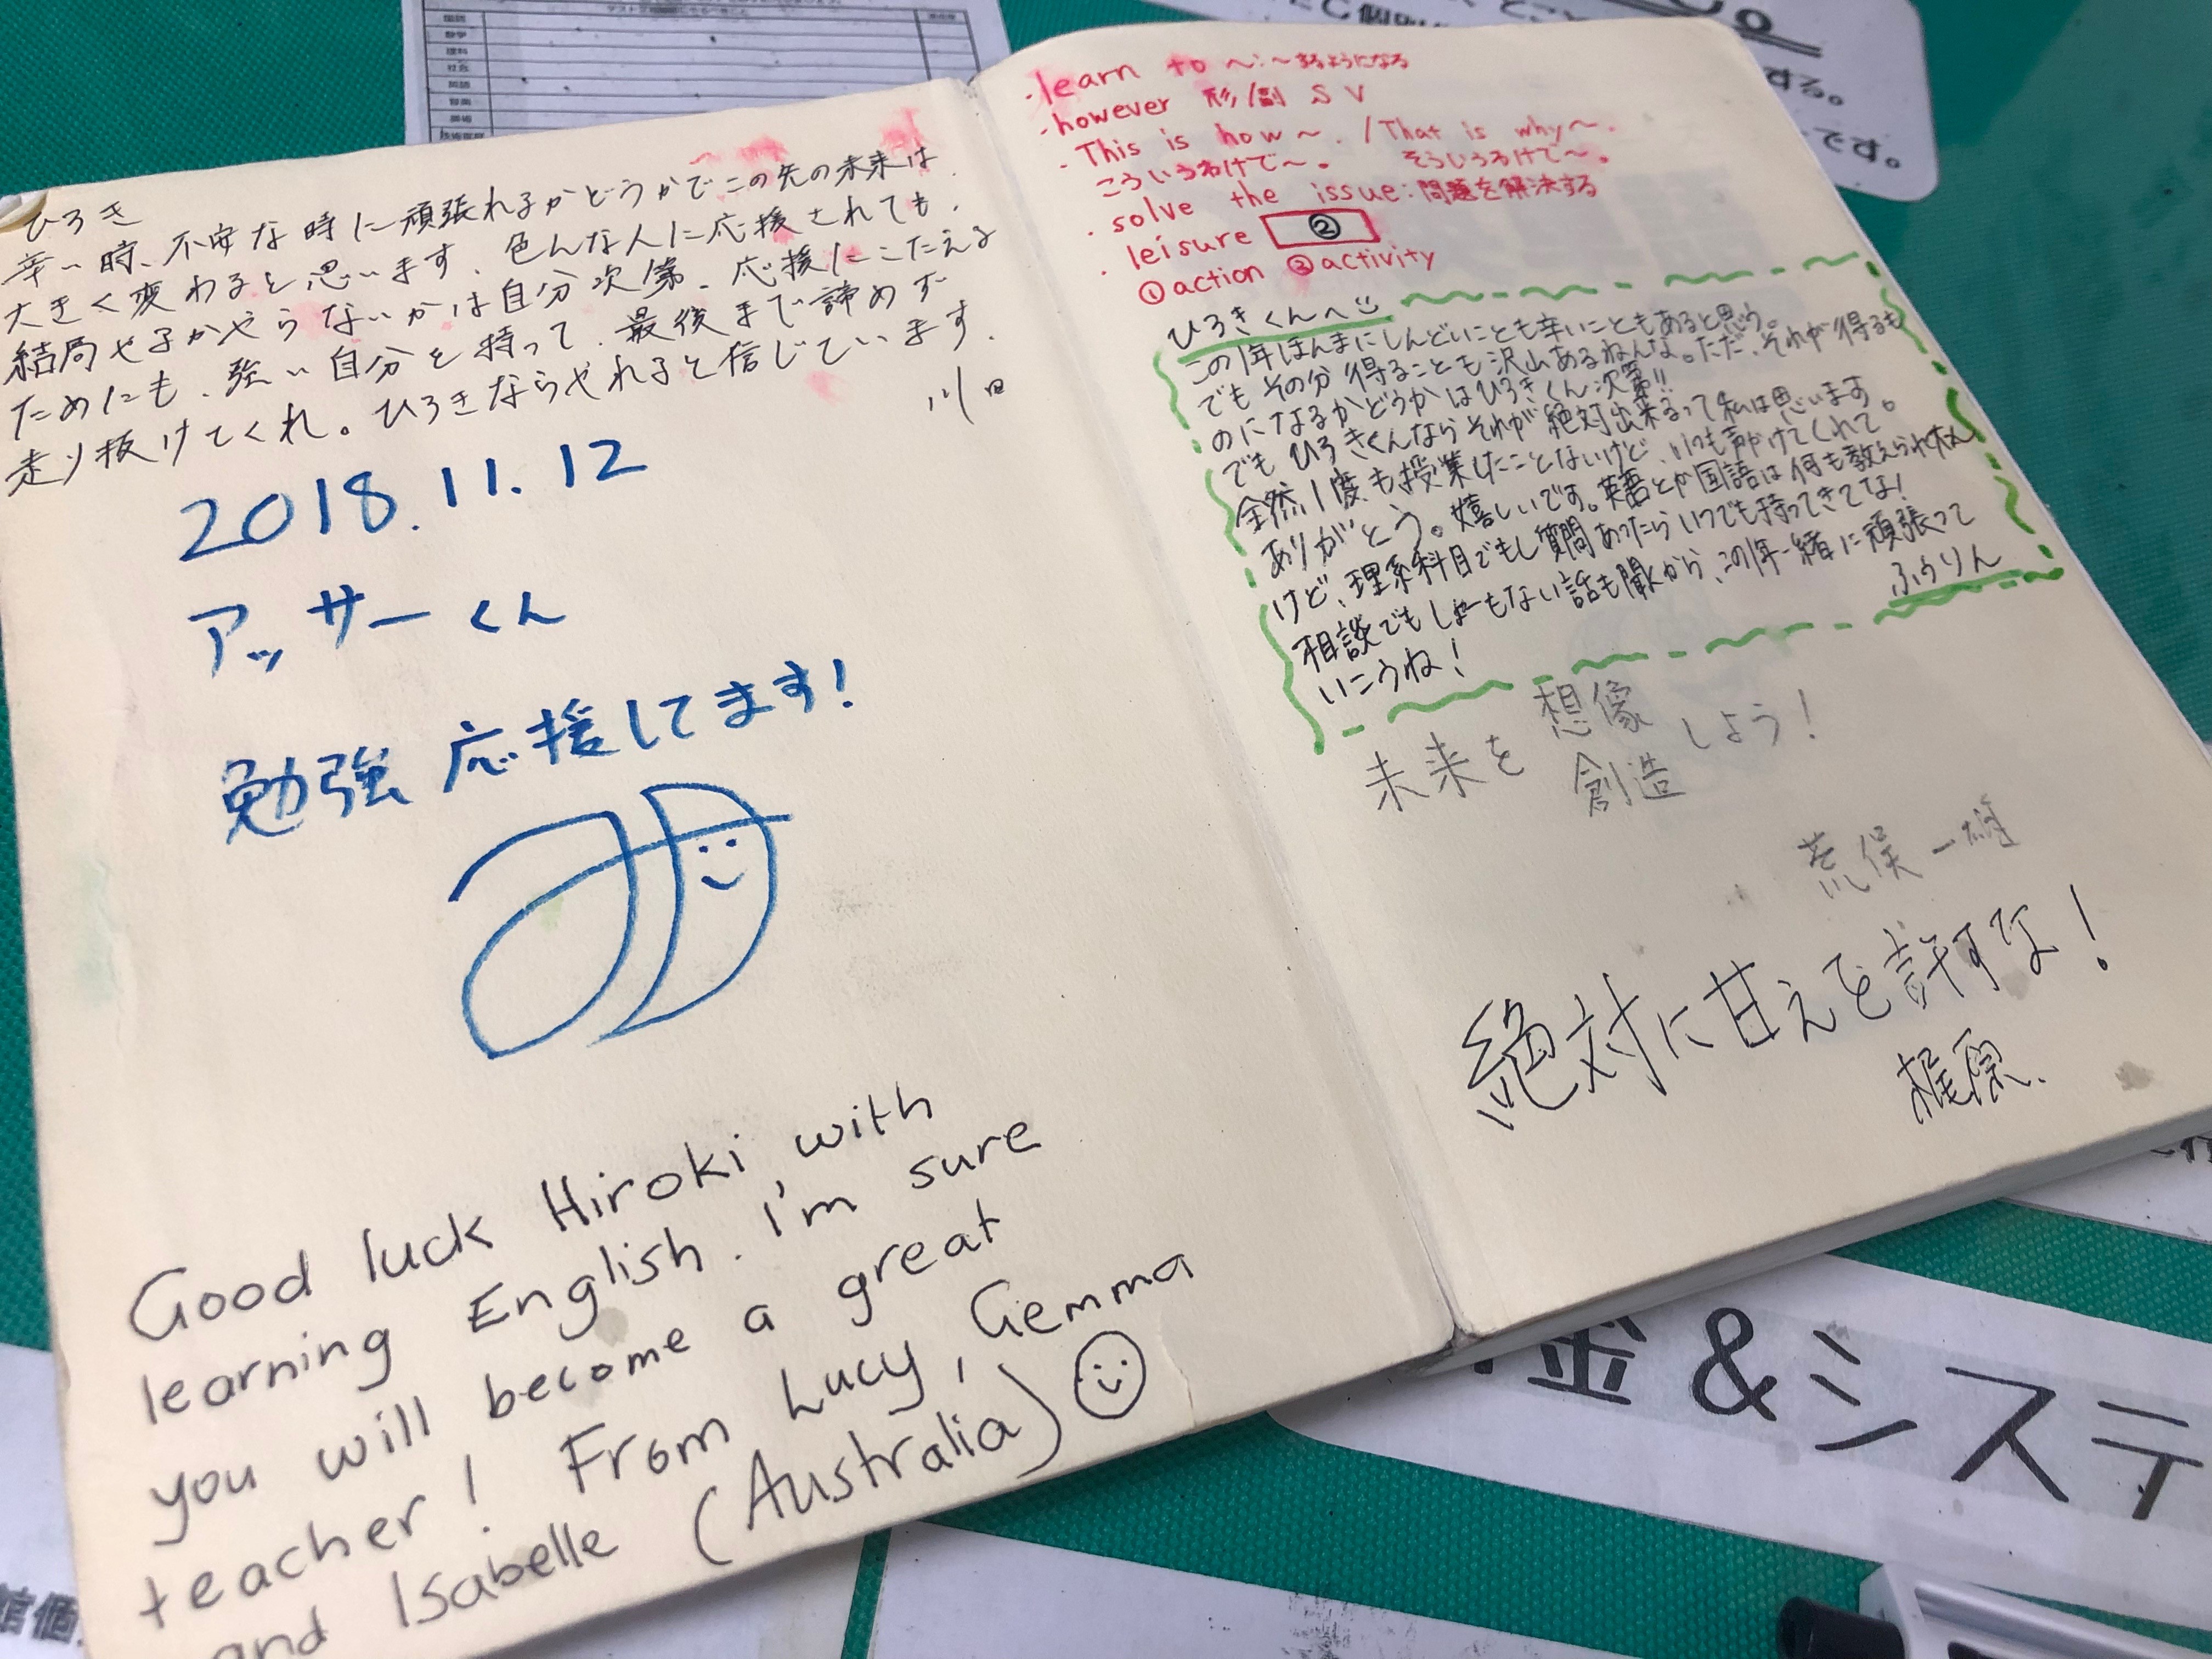 ひろき
辛い時、不安な時に頑張れるかどうかでこの先の未来は
大きく変わると思います、色んな人に応援されても、
結局やるかやらないかは自分次第、応援にこたえる
ためにも、強い自分を持って、最後まで諦めず
走り抜けてくれ。ひろきならやれると信じています.
川田
2018.11.12
アッサーくん
勉強 応援してます!
Good luck Hiroki, with
learning English. I'm sure
you will become a great
teacher! From Lucy, Gemma
and Isabelle (Australia)
・learn to ～:～するようになる
・however 形/副 S V
・This is how～. /That is why～.
こういうわけで～。 そういうわけで～。
・solve the issue:問題を解決する
・leisure ②
①action ②activity
ひろきくんへ
この1年ほんまにしんどいことも辛いこともあると思う。
でもその分得ることも沢山あるねんな。ただ、それが得るも
のになるかどうかはひろきくん次第!!
でもひろきくんならそれが絶対出来るって私は思います。
全然1度も授業したことないけど、いつも声かけてくれて
ありがとう。嬉しいです。英語とか国語は何も教えられへん
けど、理系科目でもし質問あったらいつでも持ってきてな!
相談でもしょーもない話も聞くから、この1年一緒に頑張って
いこうね!
ふうりん
未来を 想像 しよう!
創造
荒俣 一雄
絶対に甘えを許すな!
梶原.
金&システ
する。
です。